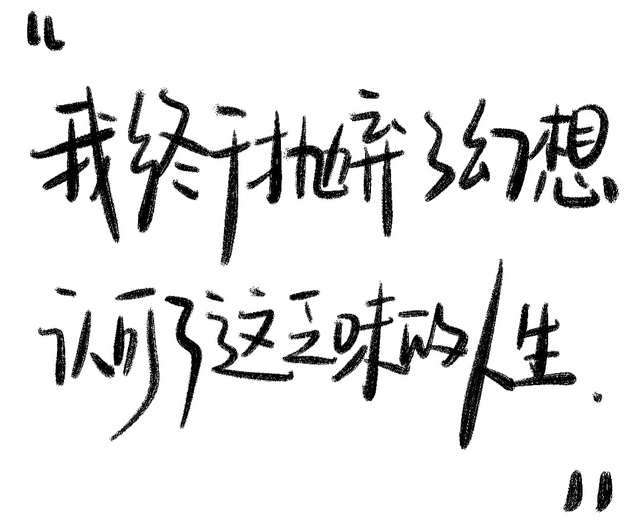 “
我终于抛弃了幻想
认可了这乏味的人生.
”